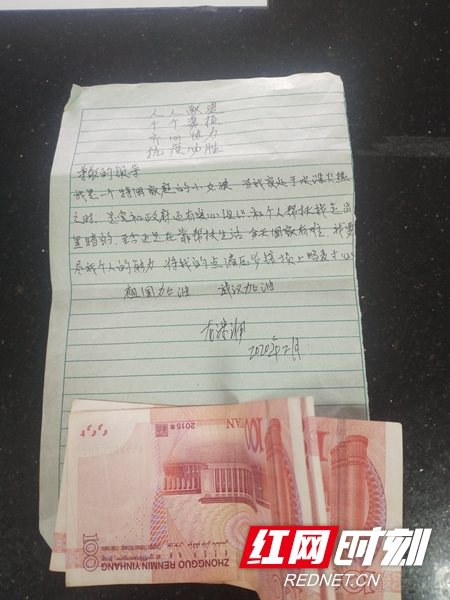 人人献爱
个个募捐
齐心协力
抗疫必胜
尊敬的领导
我是一个特困家庭的小女孩 当我家处于水深火热
之时 是党和政府还有爱心组织和个人帮扶我走出
黑暗的 至今还是在靠帮扶生活 今天国家有难 我要
尽我个人的能力 将我的点滴压岁钱 上略表寸心
祖国加油 武汉加油
2020年2月
2015年
100
YUAN
100
ZHONGGUO RENMIN YINHANG
红网时刻
REDNET.CN